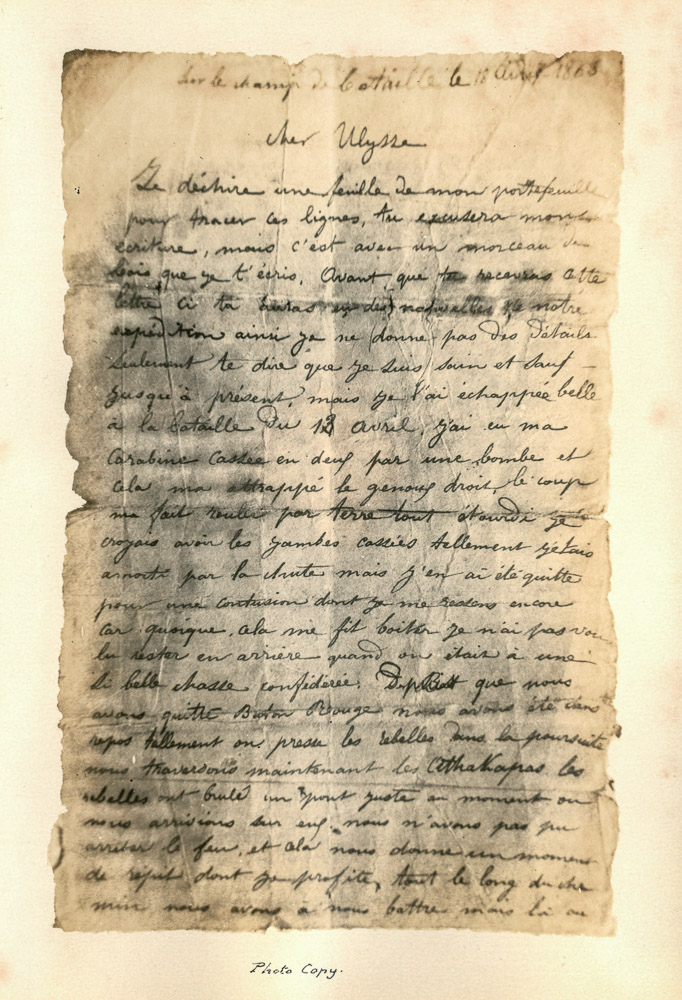 Sur le champ de bataille le 18 Avril 1863
cher Ulysse
Je déchire une feuille de mon portefeuille
pour tracer ces lignes, tu excusera mon
écriture, mais c'est avec un morceau de
bois que je t'écris. Avant que tu receveras cette
lettre ci tu auras eu des nouvelles de notre
expédition ainsi je ne donne pas des détails
seulement te dire que je suis sain et sauf
jusqu'à présent, mais je l'ai échappée belle
à la bataille Du 13 avril, j'ai eu ma
Carabine Cassée en deux par une bombe et
cela ma attrappé le genoux droit, le coup
ma fait rouler par terre tout étourdi je
croyais avoir les jambes cassées tellement j'étais
amorti par la chute mais j'en ai été quitte
pour une contusion dont je me ressens encore
car quoique cela me fit boiter je n'ai pas vou
lu rester en arrière quand on était à une
si belle chasse confédérée. que nous
avons quitté Baton Rouge nous avons été sans
repos tellement on presse les rebelles dans la poursuite
nous traversons maintenant les Athakapas les
rebelles ont brulé un pont juste au moment où
nous arrivions sur eux nous n'avons pas pu
arrêter le feu, et cela nous donne un moment
de répit dont je profite, tout le long du che
min nous avons à nous battre mais là au
Photo Copy.